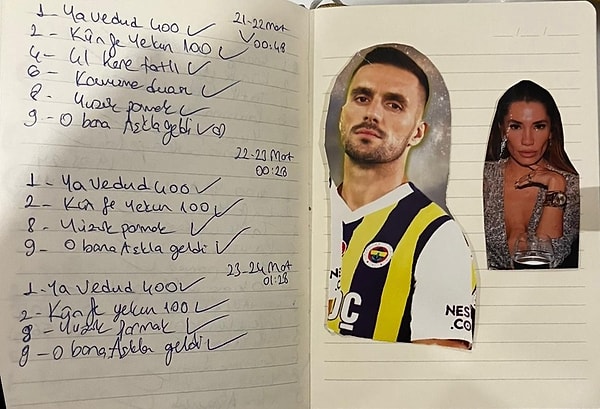 1 - Ya Vedud 400 ✓
21-22 Mart
2 - Kün fe Yekün 100 ✓
✓ 00:48
4 - 41 Kere fatli ✓
6 - Kavuşma duası ✓
8 - Yüzük parmak ✓
9 - O bana Aşkla geldi ✓
22-23 Mart
00:28
1 - Ya Vedud 400 ✓
2 - Kün fe Yekün 100 ✓
8 - Yüzük parmak ✓
9 - O bana Aşkla geldi ✓
23-24 Mart
01:28
1 - Ya Vedud 400 ✓
2 - Kün fe yekün 100 ✓
8 - Yüzük parmak ✓
9 - O bana Aşkla geldi ✓
FENERBAHÇE
1907
NES
.CO
OÇ
NES
.CO